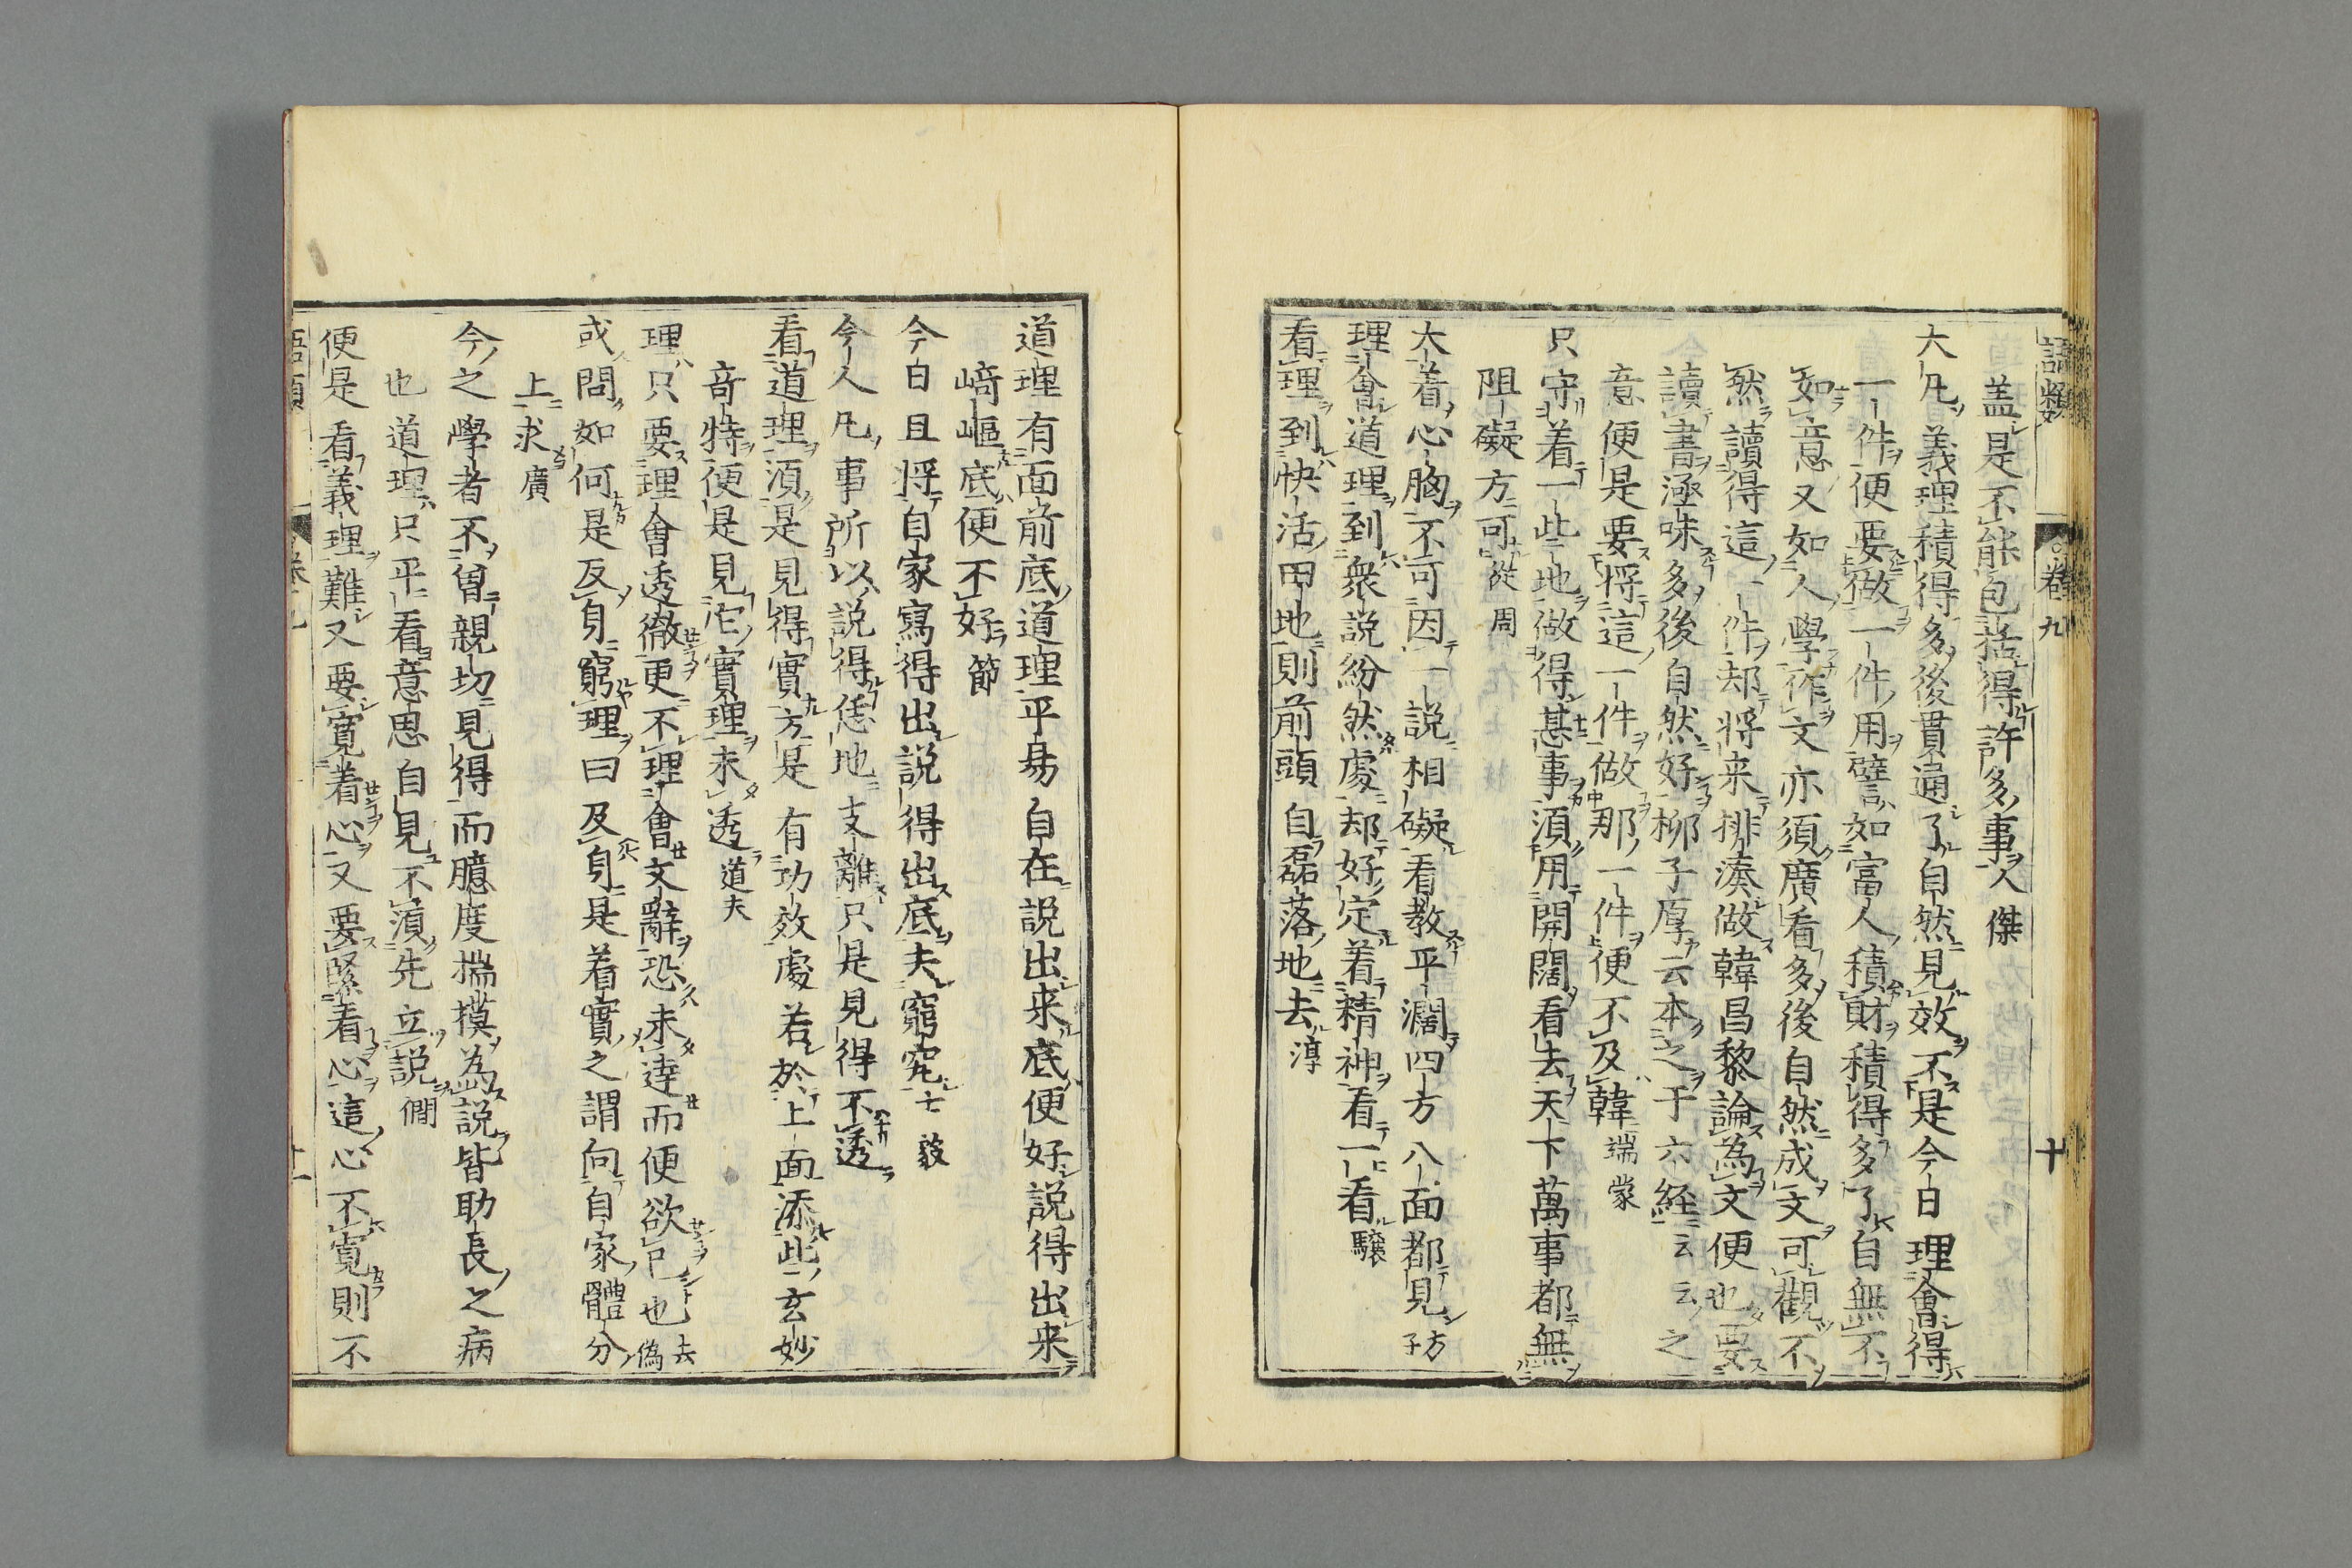 語類 卷九 十
盖是不能包括得許多事人傑
大凡義理積得多後貫通了自然見效不是今日理會得
一件便要做一件用譬如富人積財積得多了自無不
如意又如人學作文亦須廣看多後自然成文可觀不
然讀得這一件却將来排湊做韓昌黎論為文便也要
讀書涵味多後自然好柳子厚云本之于六経云云之
意便是要将這一件做那一件便不及韓端蒙
只守着一些地做得甚事須用開闊看去天下萬事都無
阻礙方可從周
大着心胸不可因一説相礙看教平濶四方八面都見方子
理會道理到衆説紛然處却好定着精神看一看驤
看理到快活田地則前頭自磊落地去淳
道理有面前底道理平易自在説出来底便好説得出来
崎嶇底便不好節
今日且将自家寫得出説得出底去窮究士毅
今人凡事所以説得恁地支離只是見得不透
看道理須是見得實方是有功效處若於上面添些玄妙
奇特便是見它實理未透道夫
理只要理會透徹更不理會文辭恐未達而便欲已也去偽
或問如何是反身窮理曰反身是着實之謂向自家體分
上求廣
今之學者不曾親切見得而臆度揣摸為説皆助長之病
也道理只平看意思自見不須先立説僩
便是看義理難又要寬着心又要緊着心這心不寬則不